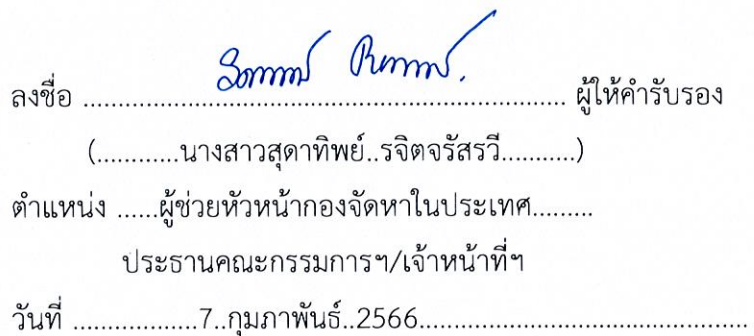 ลงชื่อ ........................................................................ ผู้ให้คำรับรอง
(............นางสาวสุดาทิพย์..รจิตจรัสรวี...........)
ตำแหน่ง ......ผู้ช่วยหัวหน้ากองจัดหาในประเทศ.........
ประธานคณะกรรมการฯ/เจ้าหน้าที่ฯ
วันที่ ..................7..กุมภาพันธ์..2566................................................